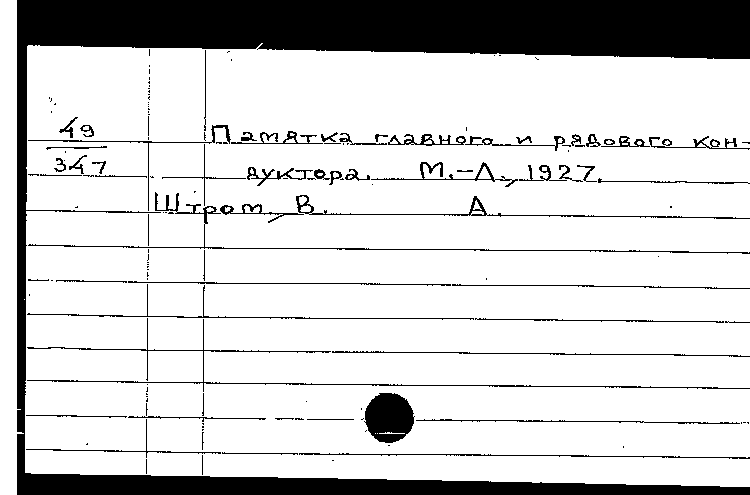 49
347
Памятка главного и рядового кон-
дуктора. М.-Л., 1927.
Штром, В. А.